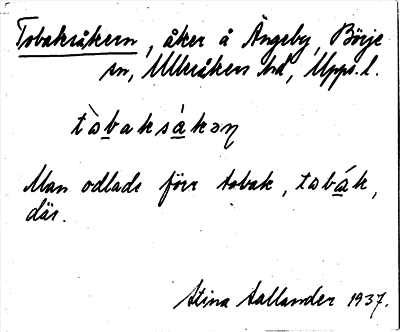 Tobaksåkern, åker å Ängeby, Börje
sn, Ulleråkers hd, Upps. l.
tòbaksákəη
Man odlade förr tobak, tobák,
där.
Stina Aallander 1937.